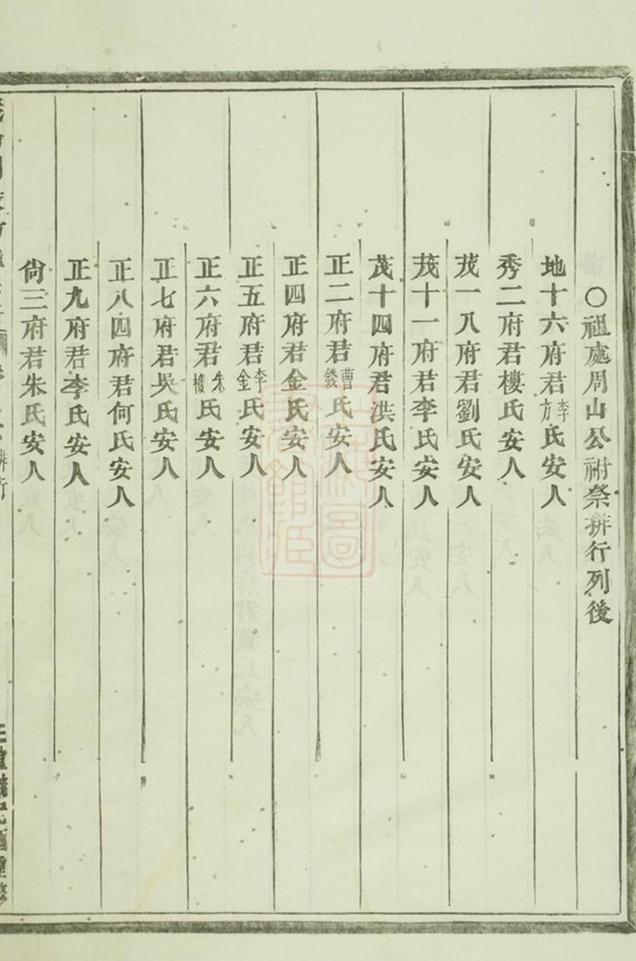 〇祖處周山公祔祭排行列後
地十六府君李方氏安人
秀二府君樓氏安人
茂一八府君劉氏安人
茂十一府君李氏安人
茂十四府君洪氏安人
正二府君曹錢氏安人
正四府君金氏安人
正五府君李金氏安人
正六府君朱樓氏安人
正七府君吳氏安人
正八四府君何氏安人
正九府君李氏安人
尙三府君朱氏安人
排行
重修